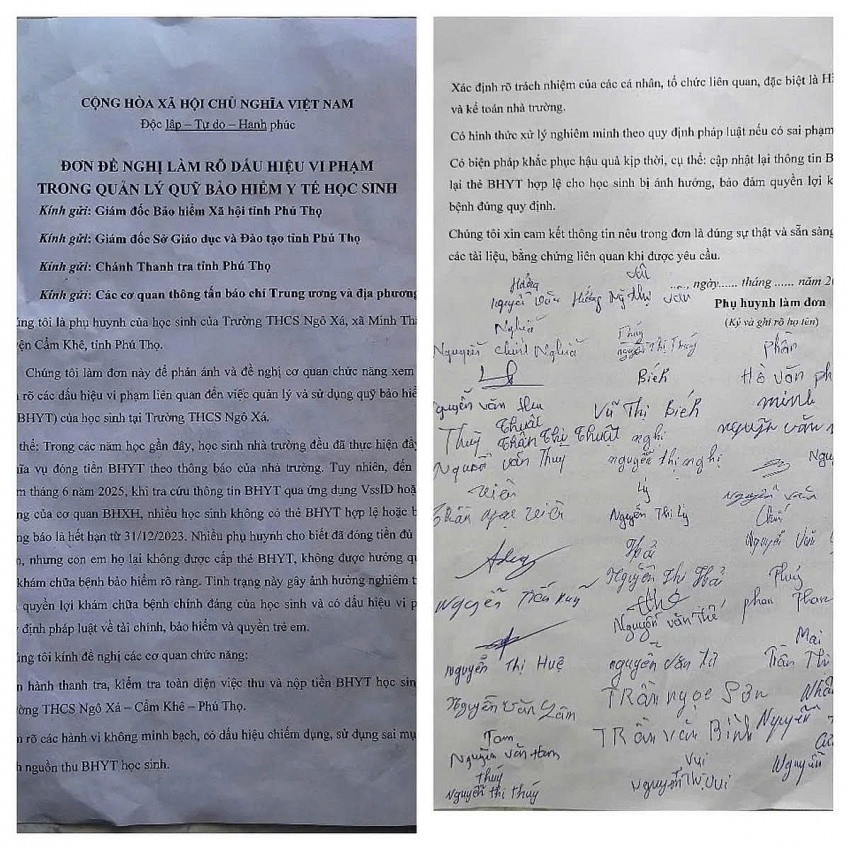 CỘNG HÒA XÃ HỘI CHỦ NGHĨA VIỆT NAM
Độc lập – Tự do – Hạnh phúc
ĐƠN ĐỀ NGHỊ LÀM RÕ DẤU HIỆU VI PHẠM
TRONG QUẢN LÝ QUỸ BẢO HIỂM Y TẾ HỌC SINH
Kính gửi: Giám đốc Bảo hiểm Xã hội tỉnh Phú Thọ
Kính gửi: Giám đốc Sở Giáo dục và Đào tạo tỉnh Phú Thọ
Kính gửi: Chánh Thanh tra tỉnh Phú Thọ
Kính gửi: Các cơ quan thông tấn báo chí Trung ương và địa phương
tôi là phụ huynh của học sinh của Trường THCS Ngô Xá, xã Minh
Cẩm Khê, tỉnh Phú Thọ.
Chúng tôi làm đơn này để phản ánh và đề nghị cơ quan chức năng xem
rõ các dấu hiệu vi phạm liên quan đến việc quản lý và sử dụng quỹ bảo
(BHYT) của học sinh tại Trường THCS Ngô Xá.
thể: Trong các năm học gần đây, học sinh nhà trường đều đã thực hiện
vụ đóng tiền BHYT theo thông báo của nhà trường. Tuy nhiên, đến
tháng 6 năm 2025, khi tra cứu thông tin BHYT qua ứng dụng VssID
của cơ quan BHXH, nhiều học sinh không có thẻ BHYT hợp lệ hoặc
báo là hết hạn từ 31/12/2023. Nhiều phụ huynh cho biết đã đóng tiền đủ
nhưng con em họ lại không được cấp thẻ BHYT, không được hưởng
khám chữa bệnh bảo hiểm rõ ràng. Tình trạng này gây ảnh hưởng nghiêm
quyền lợi khám chữa bệnh chính đáng của học sinh và có dấu hiệu vi
định pháp luật về tài chính, bảo hiểm và quyền trẻ em.
tôi kính đề nghị các cơ quan chức năng:
hành thanh tra, kiểm tra toàn diện việc thu và nộp tiền BHYT học
THCS Ngô Xá – Cẩm Khê – Phú Thọ.
rõ các hành vi không minh bạch, có dấu hiệu chiếm dụng, sử dụng sai
nguồn thu BHYT học sinh.
Xác định rõ trách nhiệm của các cá nhân, tổ chức liên quan, đặc biệt là
và kế toán nhà trường.
Có hình thức xử lý nghiêm minh theo quy định pháp luật nếu có sai phạm
Có biện pháp khắc phục hậu quả kịp thời, cụ thể: cập nhật lại thông tin
lại thẻ BHYT hợp lệ cho học sinh bị ảnh hưởng, bảo đảm quyền lợi
bệnh đúng quy định.
Chúng tôi xin cam kết thông tin nêu trong đơn là đúng sự thật và sẵn sàng
các tài liệu, bằng chứng liên quan khi được yêu cầu.
....., ngày...... tháng ...... năm
Phụ huynh làm đơn
(Ký và ghi rõ họ tên)
Nghĩa Thúy Phần
Nguyễn Chính Nghĩa nguyễn Thị Thúy
Bích Hồ Văn
Vũ Thị Bích minh
Thuật nghi nguyễn văn
nguyễn thị nghị
Viên Lý
Nguyễn Thị Lý Nguyễn Văn
Hải
Nguyễn Thị Hải Phú
Nguyễn Văn Thế phan
Mai
nguyễn Thị Huệ nguyễn Văn Trần Thị
TRần ngọc Sơn
TRần văn Bình Nguyễn
Tam Vui
Thúy Nguyễn
Nguyễn thị thúy